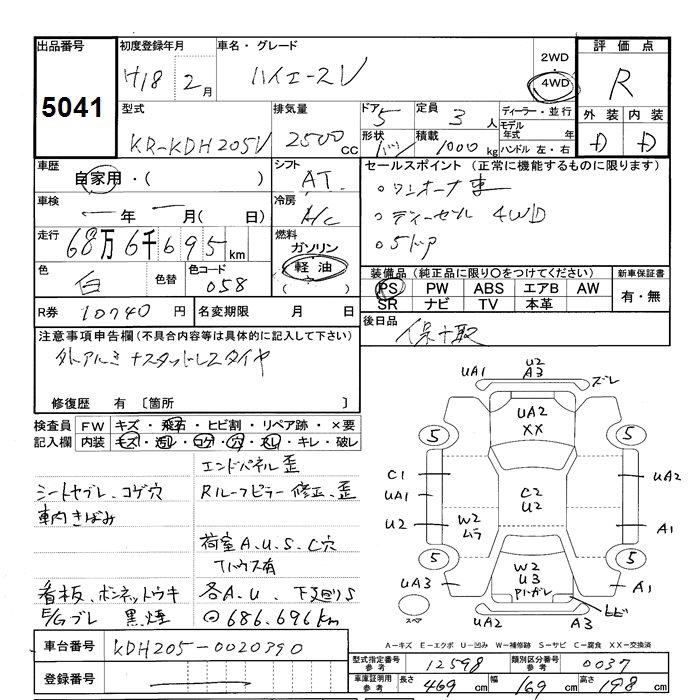 出品番号 初度登録年月 車名・グレード 評価点
5041 H18 2月 ハイエースV 2WD 4WD R
型式 排気量 ドア 5 定員 3人 ディーラー・並行 外装 内装
KR-KDH205V 2500cc 形状 バン 積載 1000kg モデル年式 年 D D
ハンドル 左・右
車歴 シフト セールスポイント (正常に機能するものに限ります)
自家用・( ) AT ・ワンオーナー車
車検 冷房
— 年 — 月( 日) A/C ・ディーゼル 4WD
走行 燃料 ・5ドア
68万6千695km ガソリン
軽油
( )
色 色替 色コード 装備品 (純正品に限り〇をつけてください) 新車保証書
白 058 PS PW ABS エアB AW 有・無
SR ナビ TV 本革
R券 10740円 名変期限 月 日 後日品
注意事項申告欄(不具合内容等は具体的に記入して下さい) 保+取
外アルミ+スタッドレスタイヤ
修復歴 有〔箇所 〕
検査員 FW キズ・飛石・ヒビ割・リペア跡・×要
記入欄 内装 キズ・汚レ・コゲ・穴・スレ・キレ・破レ
エンドパネル歪
シートヤブレ、コゲ穴 Rルーフピラー修正、歪
車内きばみ
荷室A.U.S.C穴
看板、ボンネットウキ 各A.U、下廻りS
E/Gブレ 黒煙 686.696km
U2
UA1 A3 ズレ
UA2
XX
5 5
C1 UA2
UA1 C2
U2
U2 W2 A1
ムラ
5 5
W2
U3
UA3 A1
スペア ヒビ
UA2 A3
A−キズ E−エクボ U−凹み W−補修跡 S−サビ C−腐食 XX−交換済
車台番号 KDH205-0020390
登録番号
型式指定番号 参考 12598 類別区分番号 参考 0037
車庫証明用 参考 長さ 469cm 幅 169cm 高さ 198cm